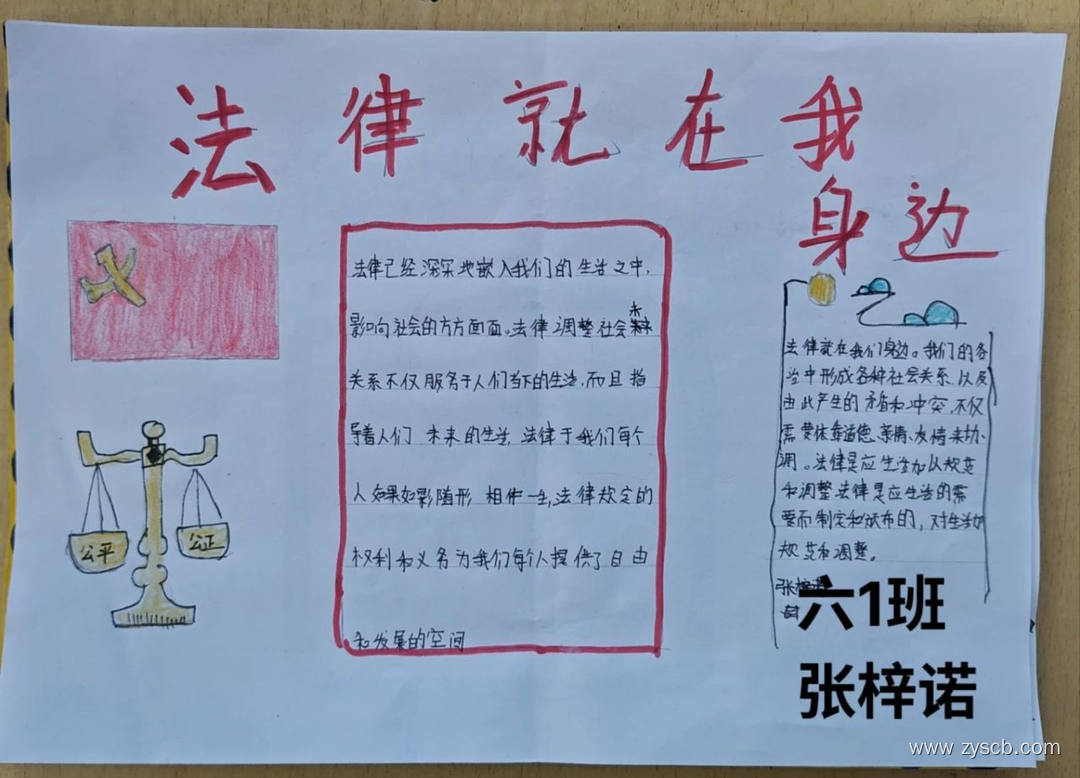 法律就在我
身边
法律已经深深地嵌入我们的生活之中,
影响社会的方方面面。法律调整社会
关系不仅服务于人们当下的生活,而且指
导着人们未来的生活,法律于我们每个
人如果如影随形,相伴一生,法律规定的
权利和义务为我们每个人提供了自由
和发展的空间
公平
公正
法律就在我们身边。我们的各
当中形成各种社会关系,以及
由此产生的矛盾和冲突,不仅
需要依靠道德、亲情、友情来协
调。法律是应生活加以规范
和调整法律是应生活的需
要而制定和颁布的,对生活加
规范和调整。
张梓诺
六1班
张梓诺
www.zyscb.com